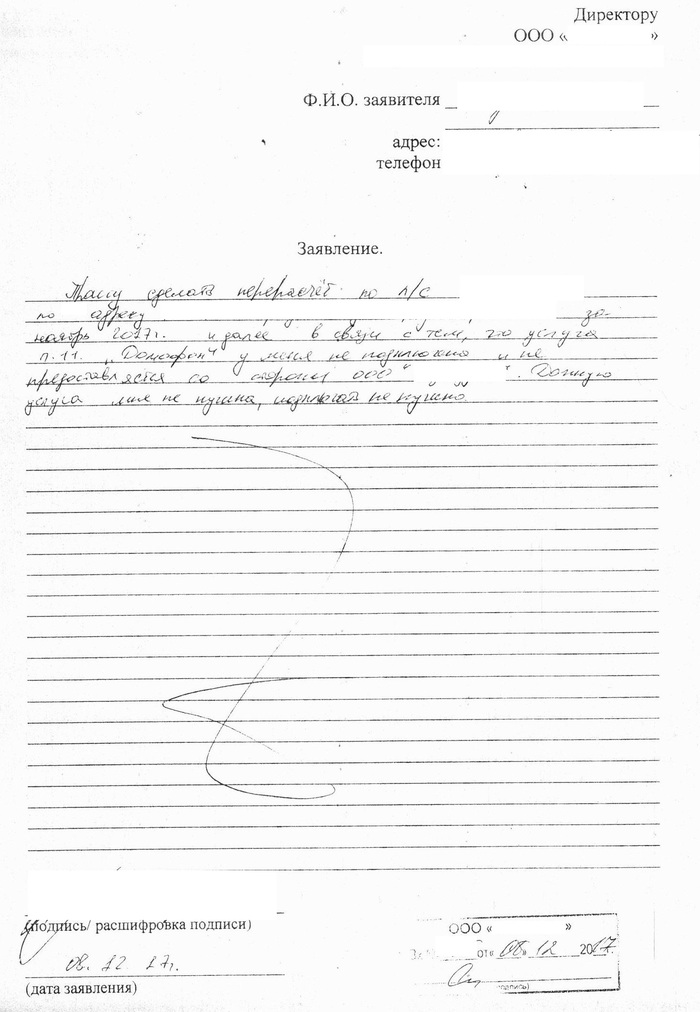 Директору
ООО « »
Ф.И.О. заявителя
адрес:
телефон
Заявление.
Прошу сделать перерасчёт по л/с
по адресу за
ноябрь 2017г. и далее в связи с тем, что услуга
п.11. „Домофон" у меня не подключена и не
предоставляется со стороны ООО " ". Данную
услуга мне не нужна, подключать не нужно.
(подпись/ расшифровка подписи)
08. 12 17г.
(дата заявления)
ООО « »
от« 08» 12 2017.
(подпись)